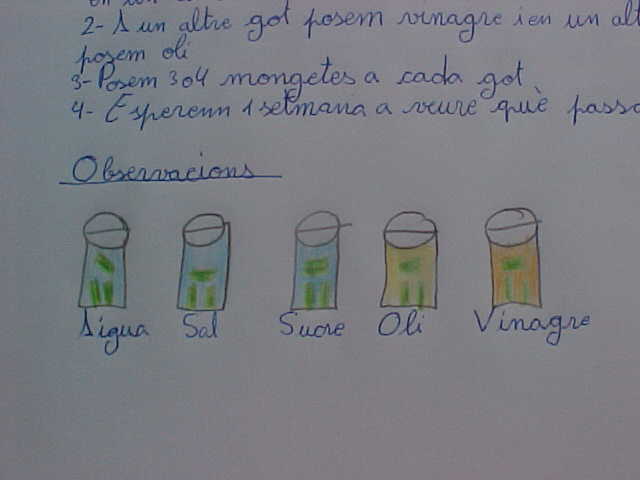 2- A un altre got posem vinagre i en un alt
posem oli
3- Posem 3 o 4 mongetes a cada got.
4- Esperem 1 setmana a veure què passa
Observacions
Aigua Sal Sucre Oli Vinagre